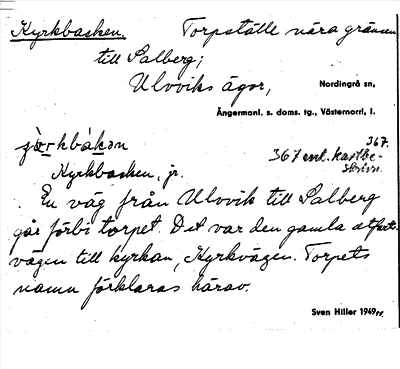 Kyrkbacken. Torpställe nära gränsen
till Salberg;
Ulvviks ägor,
Nordingrå sn,
Ångermanl. s. doms. tg., Västernorrl. l.
367.
367 enl. kartbe-
skrivn.
Kyrkbacken, jr.
En väg från Ulvvik till Salberg
går förbi torpet. Det var den gamla
vägen till kyrkan, Kyrkvägen. Torpets
namn förklaras härav.
Sven Hiller 1949